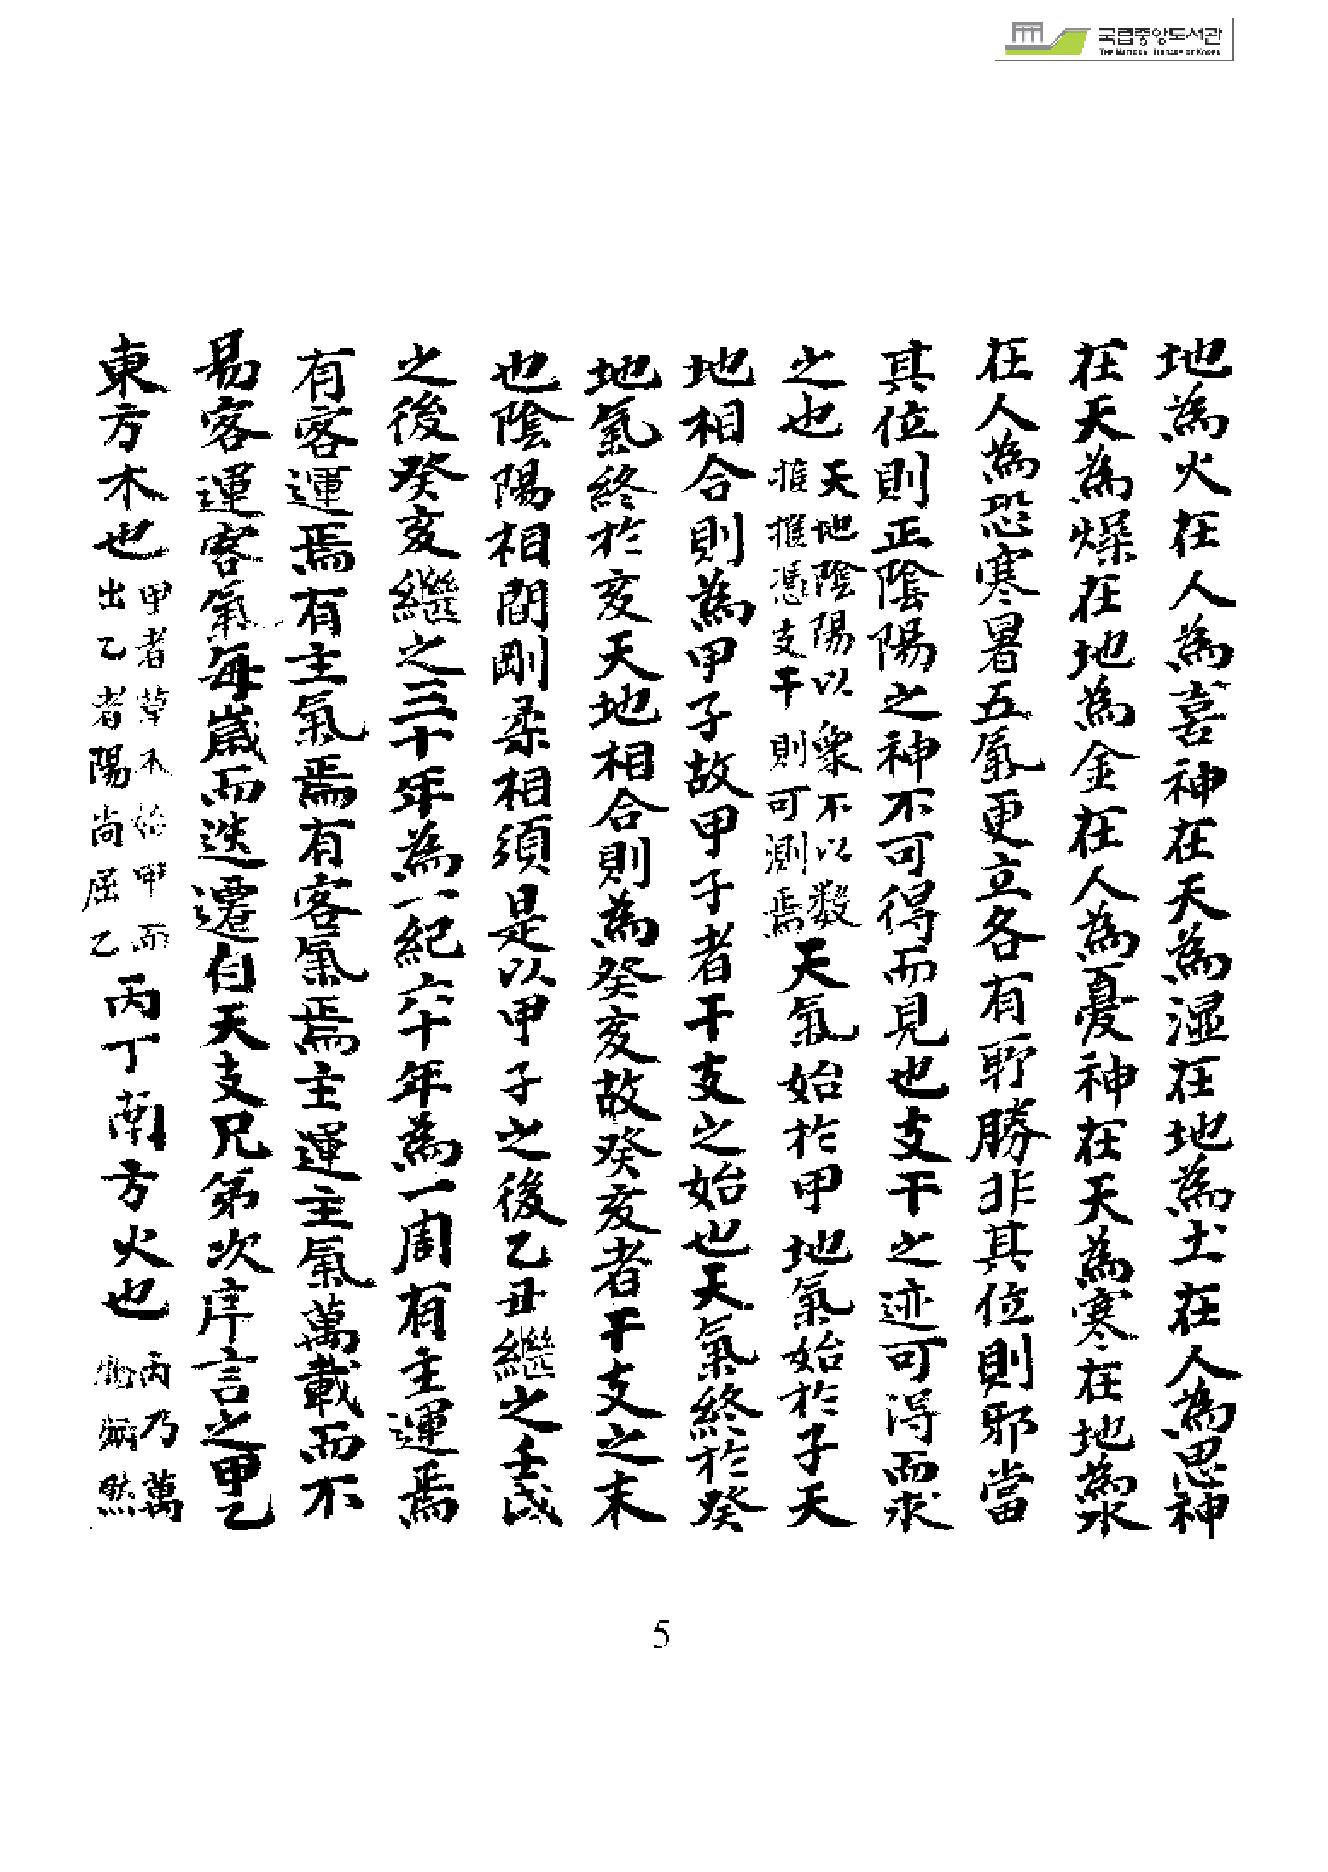 국립중앙도서관
THE NATIONAL LIBRARY OF KOREA
地為火在人為喜神在天為湿在地為土在人為思神
在天為燥在地為金在人為憂神在天為寒在地為水
在人為恐寒暑五氣更立各有所勝非其位則邪當
其位則正陰陽之神不可得而見也支干之迹可得而求
之也天地陰陽以象不以數推推憑支干則可測焉天氣始於甲地氣始於子天
地相合則為甲子故甲子者干支之始也天氣終於癸
地氣終於亥天地相合則為癸亥故癸亥者干支之末
也陰陽相間剛柔相須是以甲子之後乙丑繼之壬戌
之後癸亥繼之三十年為一紀六十年為一周有主運焉
有客運焉有主氣焉有客氣焉主運主氣萬載而不
易客運客氣每歲而迭遷自天支兄弟次序言之甲乙
東方木也甲者草木始甲而出乙者陽尚屈乙丙丁南方火也丙乃萬物炳然
5